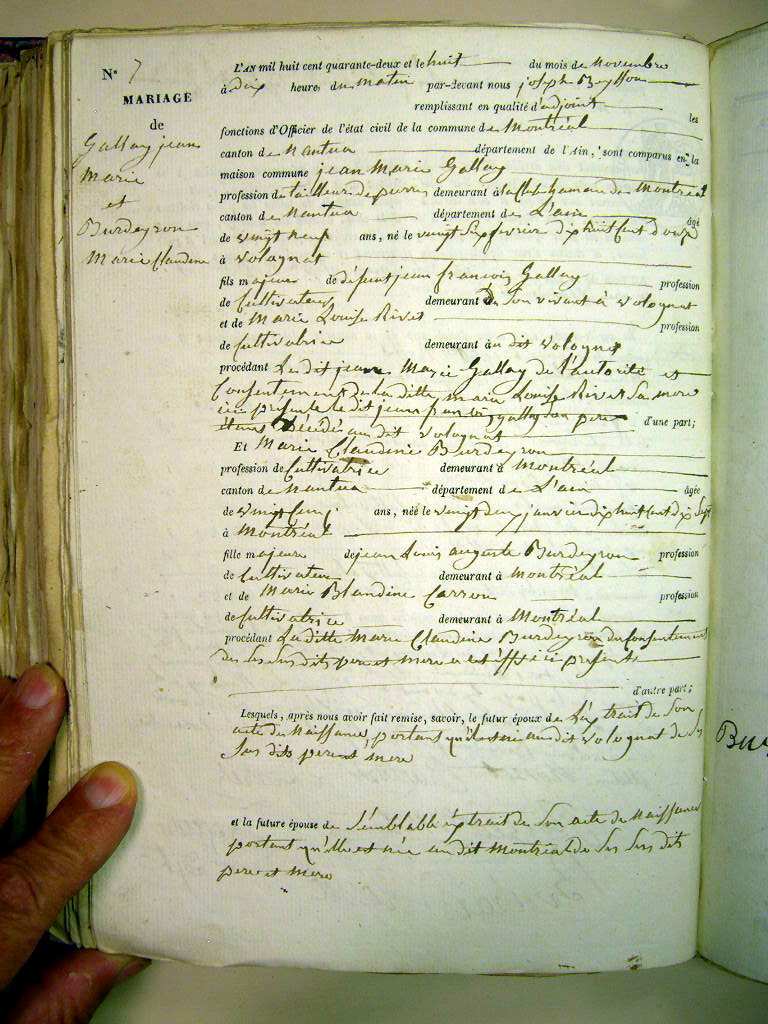 N° 7
MARIAGE
de
Gallay jean
Marie
et
Burdeyron
Marie Claudine
L'AN mil huit cent quarante-deux et le huit du mois de Novembre
à dix heures du matin par-devant nous joseph
remplissant en qualité d'adjoint les
fonctions d'Officier de l'état civil de la commune de Montréal
canton de Nantua département de l'Ain, sont comparus en la
maison commune jean Marie Gallay
profession de tailleur de pierres demeurant à la hameau de Montréal
canton de Nantua département de L'ain âgé
de vingt neuf ans, né le vingt six fevrier dix huit cent douze
à Volognat
fils majeur de défunt jean françois Gallay profession
de Cultivateur demeurant de son vivant à Volognat
et de Marie Louise Rivet profession
de Cultivatrice demeurant au dit Volognat
procédant Le dit jean Marie Gallay de l'autorité et
Consentement de la ditte marie Louise Rivet sa mere
ici présente le dit jean françois gallay son pere d'une part;
étant décédé au dit Volognat
Et Marie Claudine Burdeyron
profession de Cultivatrice demeurant à Montréal
canton de Nantua département de L'ain âgée
de vingt cinq ans, née le vingt deux janvier dix huit cent dix sept
à Montréal
fille majeure de jean Louis auguste Burdeyron profession
de Cultivateur demeurant à Montréal
et de Marie Blandine Carron profession
de Cultivatrice demeurant à Montréal
procédant La ditte Marie Claudine Burdeyron du Consentement
des ses sus dits pere et mere a cet effet ici présents
d'autre part;
Lesquels, après nous avoir fait remise, savoir, le futur époux de L'extrait de son
acte de Naissance, portant qu'il est né au dit Volognat de ses
sus dits pere et mere
et la future épouse de semblable extrait de son acte de Naissance
portant qu'elle est née au dit Montréal de ses sus dits
pere et mere